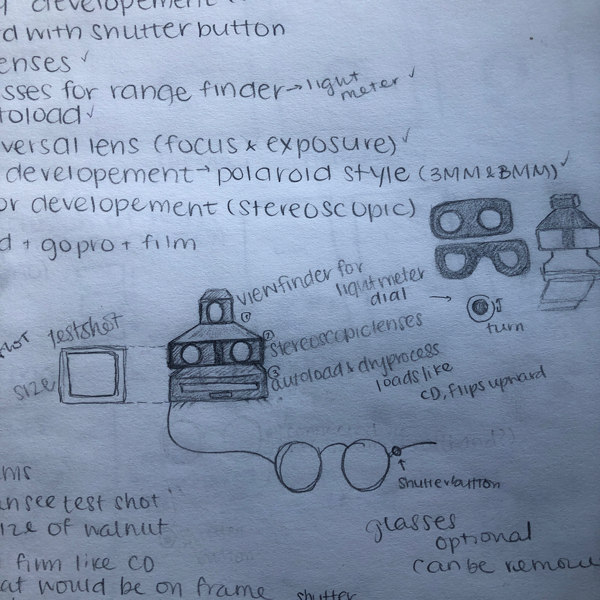 developement
d with shutter button
enses ✓
sses for range finder → light meter ✓
toload ✓
versal lens (focus & exposure) ✓
developement → polaroid style (3MM & 8MM) ✓
or developement (stereoscopic)
d + gopro + film
viewfinder for
lightmeter
dial
turn
testshot
size
stereoscopic lenses
autoloads dryprocess
loads like
CD, flips upward
shutterbutton
an see test shot
ize of walnut
film like CD
at would be on frame
shutter
glasses
optional
can be remov